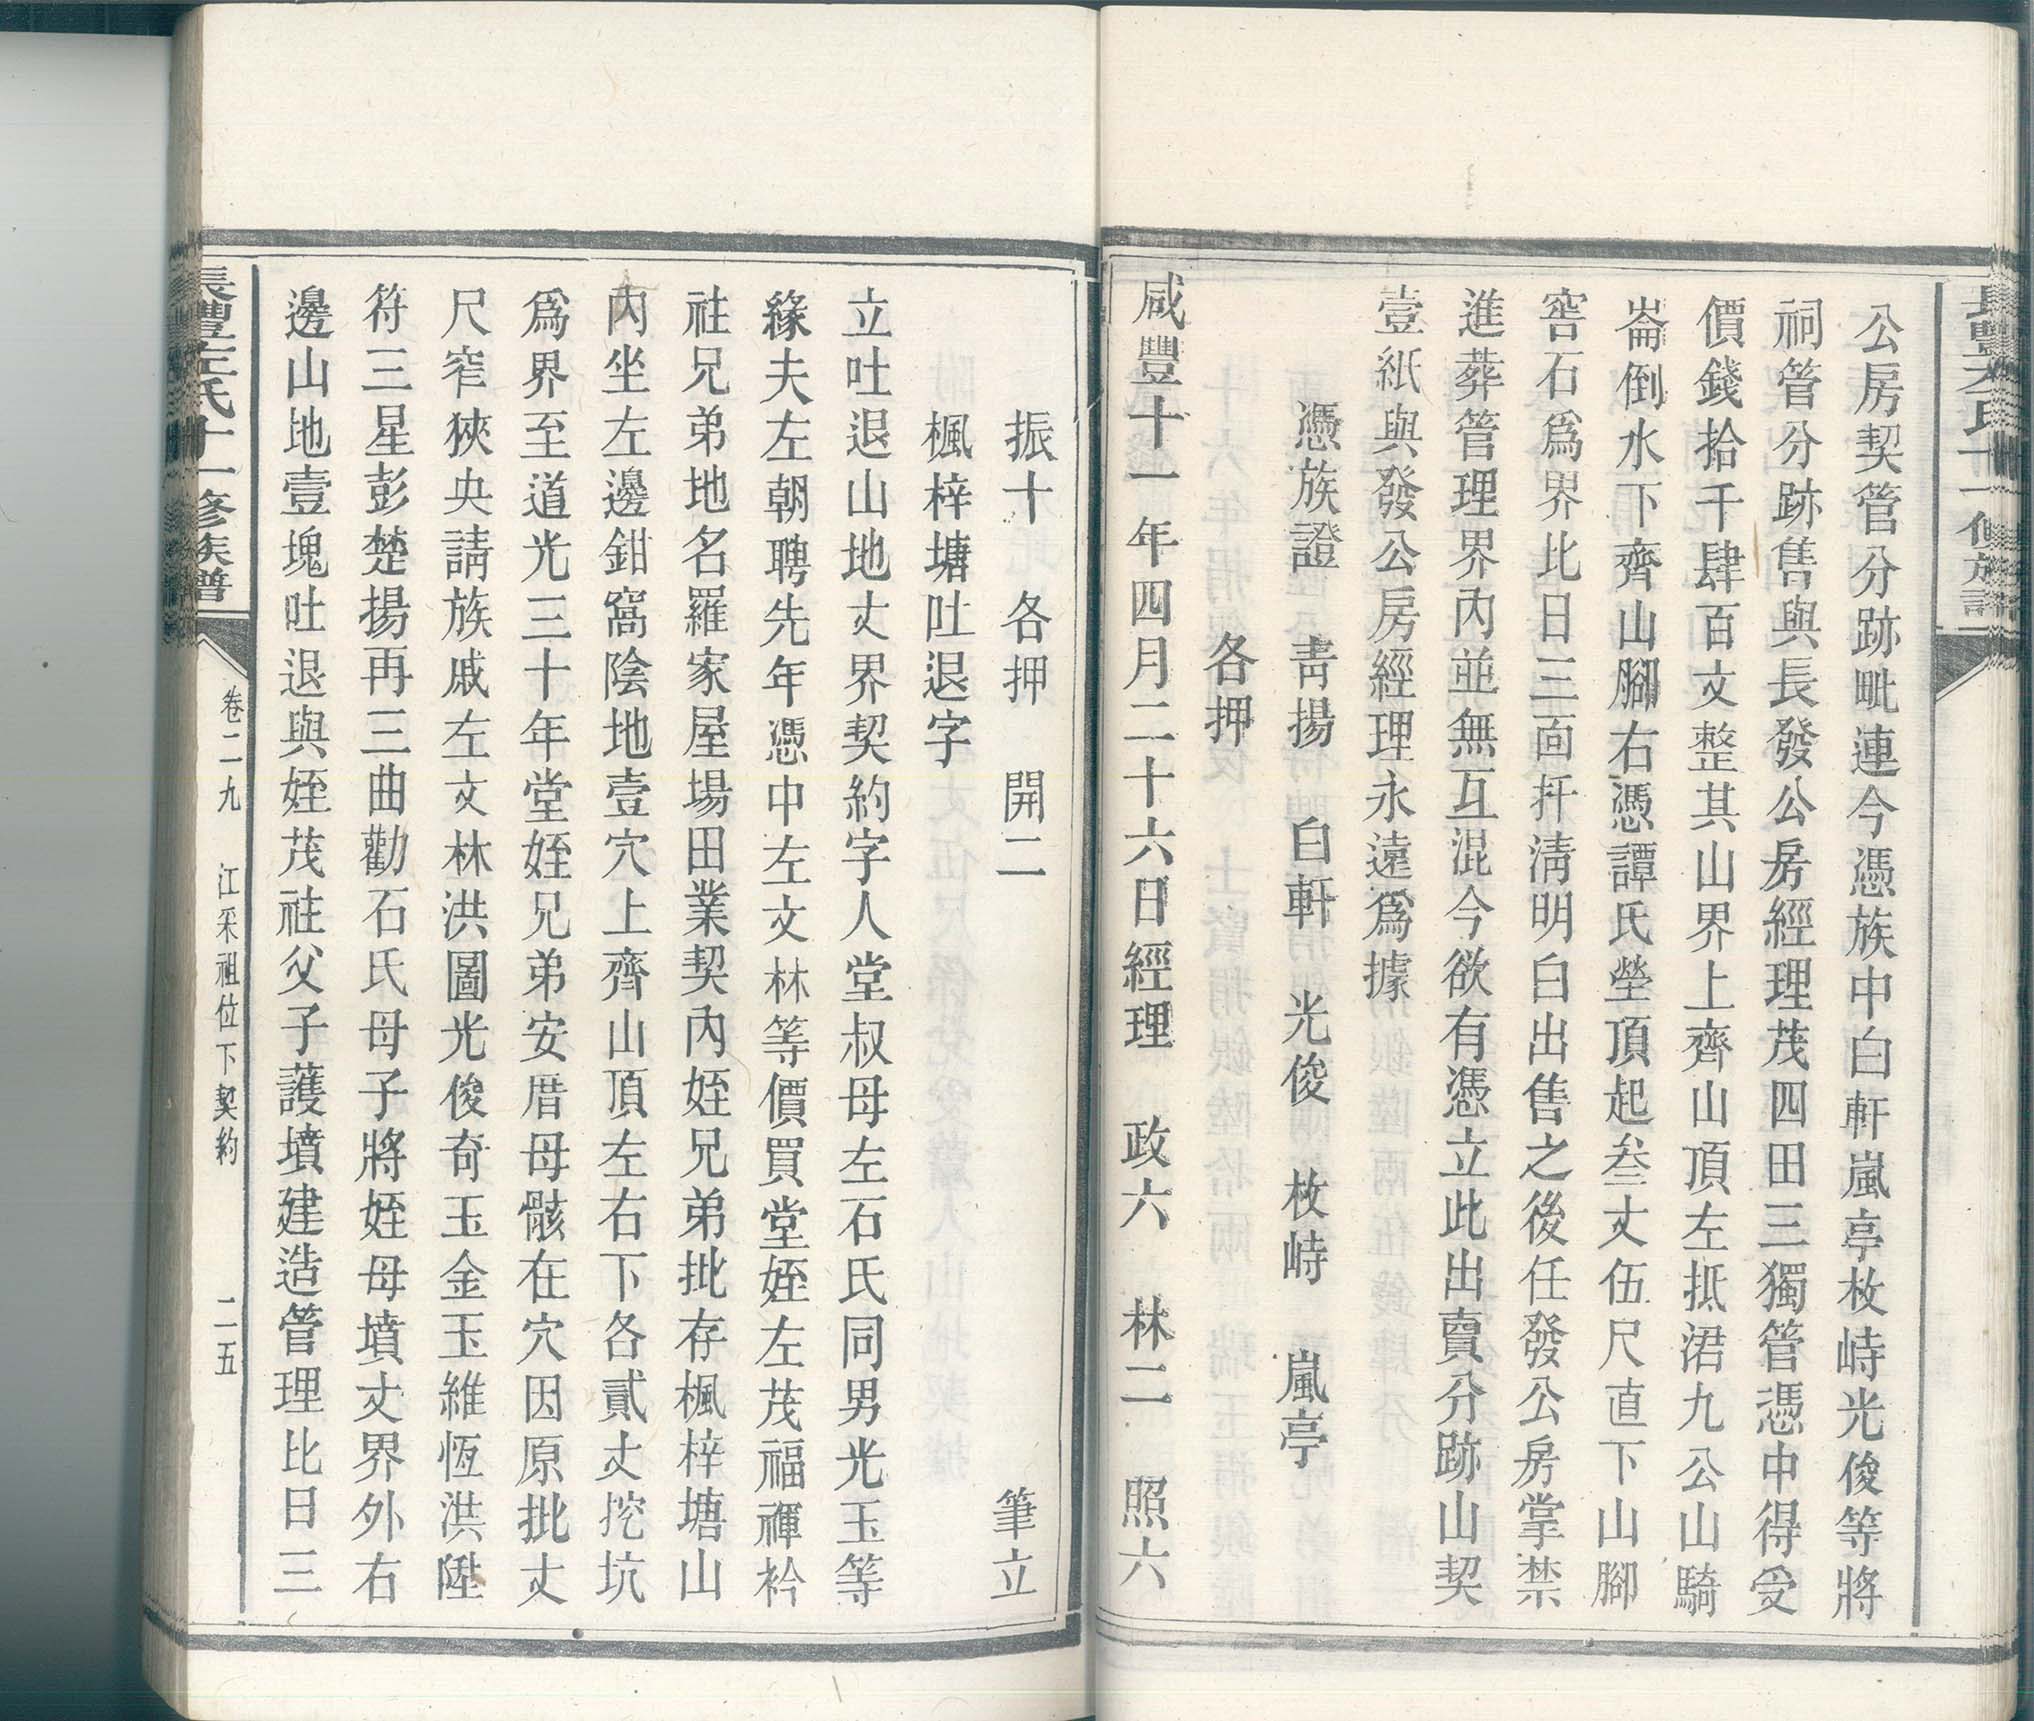 公房契管分跡毗連今憑族中白軒嵐亭枚峙光俊等將
祠管分跡售與長發公房經理茂四田三獨管憑中得受
價錢拾千肆百文整其山界上齊山頂左抵涒九公山騎
崙倒水下齊山腳右憑譚氏塋頂起叁丈伍尺直下山腳
窖石爲界比日三面扦淸明白出售之後任發公房掌禁
進葬管理界內並無互混今欲有憑立此出賣分跡山契
壹紙與發公房經理永遠爲據
憑族證 靑揚 白軒 光俊 枚峙 嵐亭
各押
咸豐十一年四月二十六日經理 政六 林二 照六
振十 各押 開二 筆立
楓梓塘吐退字
立吐退山地丈界契約字人堂叔母左石氏同男光玉等
緣夫左朝聘先年憑中左文林等價買堂姪左茂福禈衿
祍兄弟地名羅家屋場田業契內姪兄弟批存楓梓塘山
內坐左邊鉗窩陰地壹穴上齊山頂左右下各貳丈挖坑
爲界至道光三十年堂姪兄弟安厝母骸在穴因原批丈
尺窄狹央請族戚左文林洪圖光俊奇玉金玉維恆洪陞
符三星彭楚揚再三曲勸石氏母子將姪母墳丈界外右
邊山地壹塊吐退與姪茂祍父子護墳建造管理比日三
長豐左氏十一修族譜
卷二九 江采祖位下契約 二五